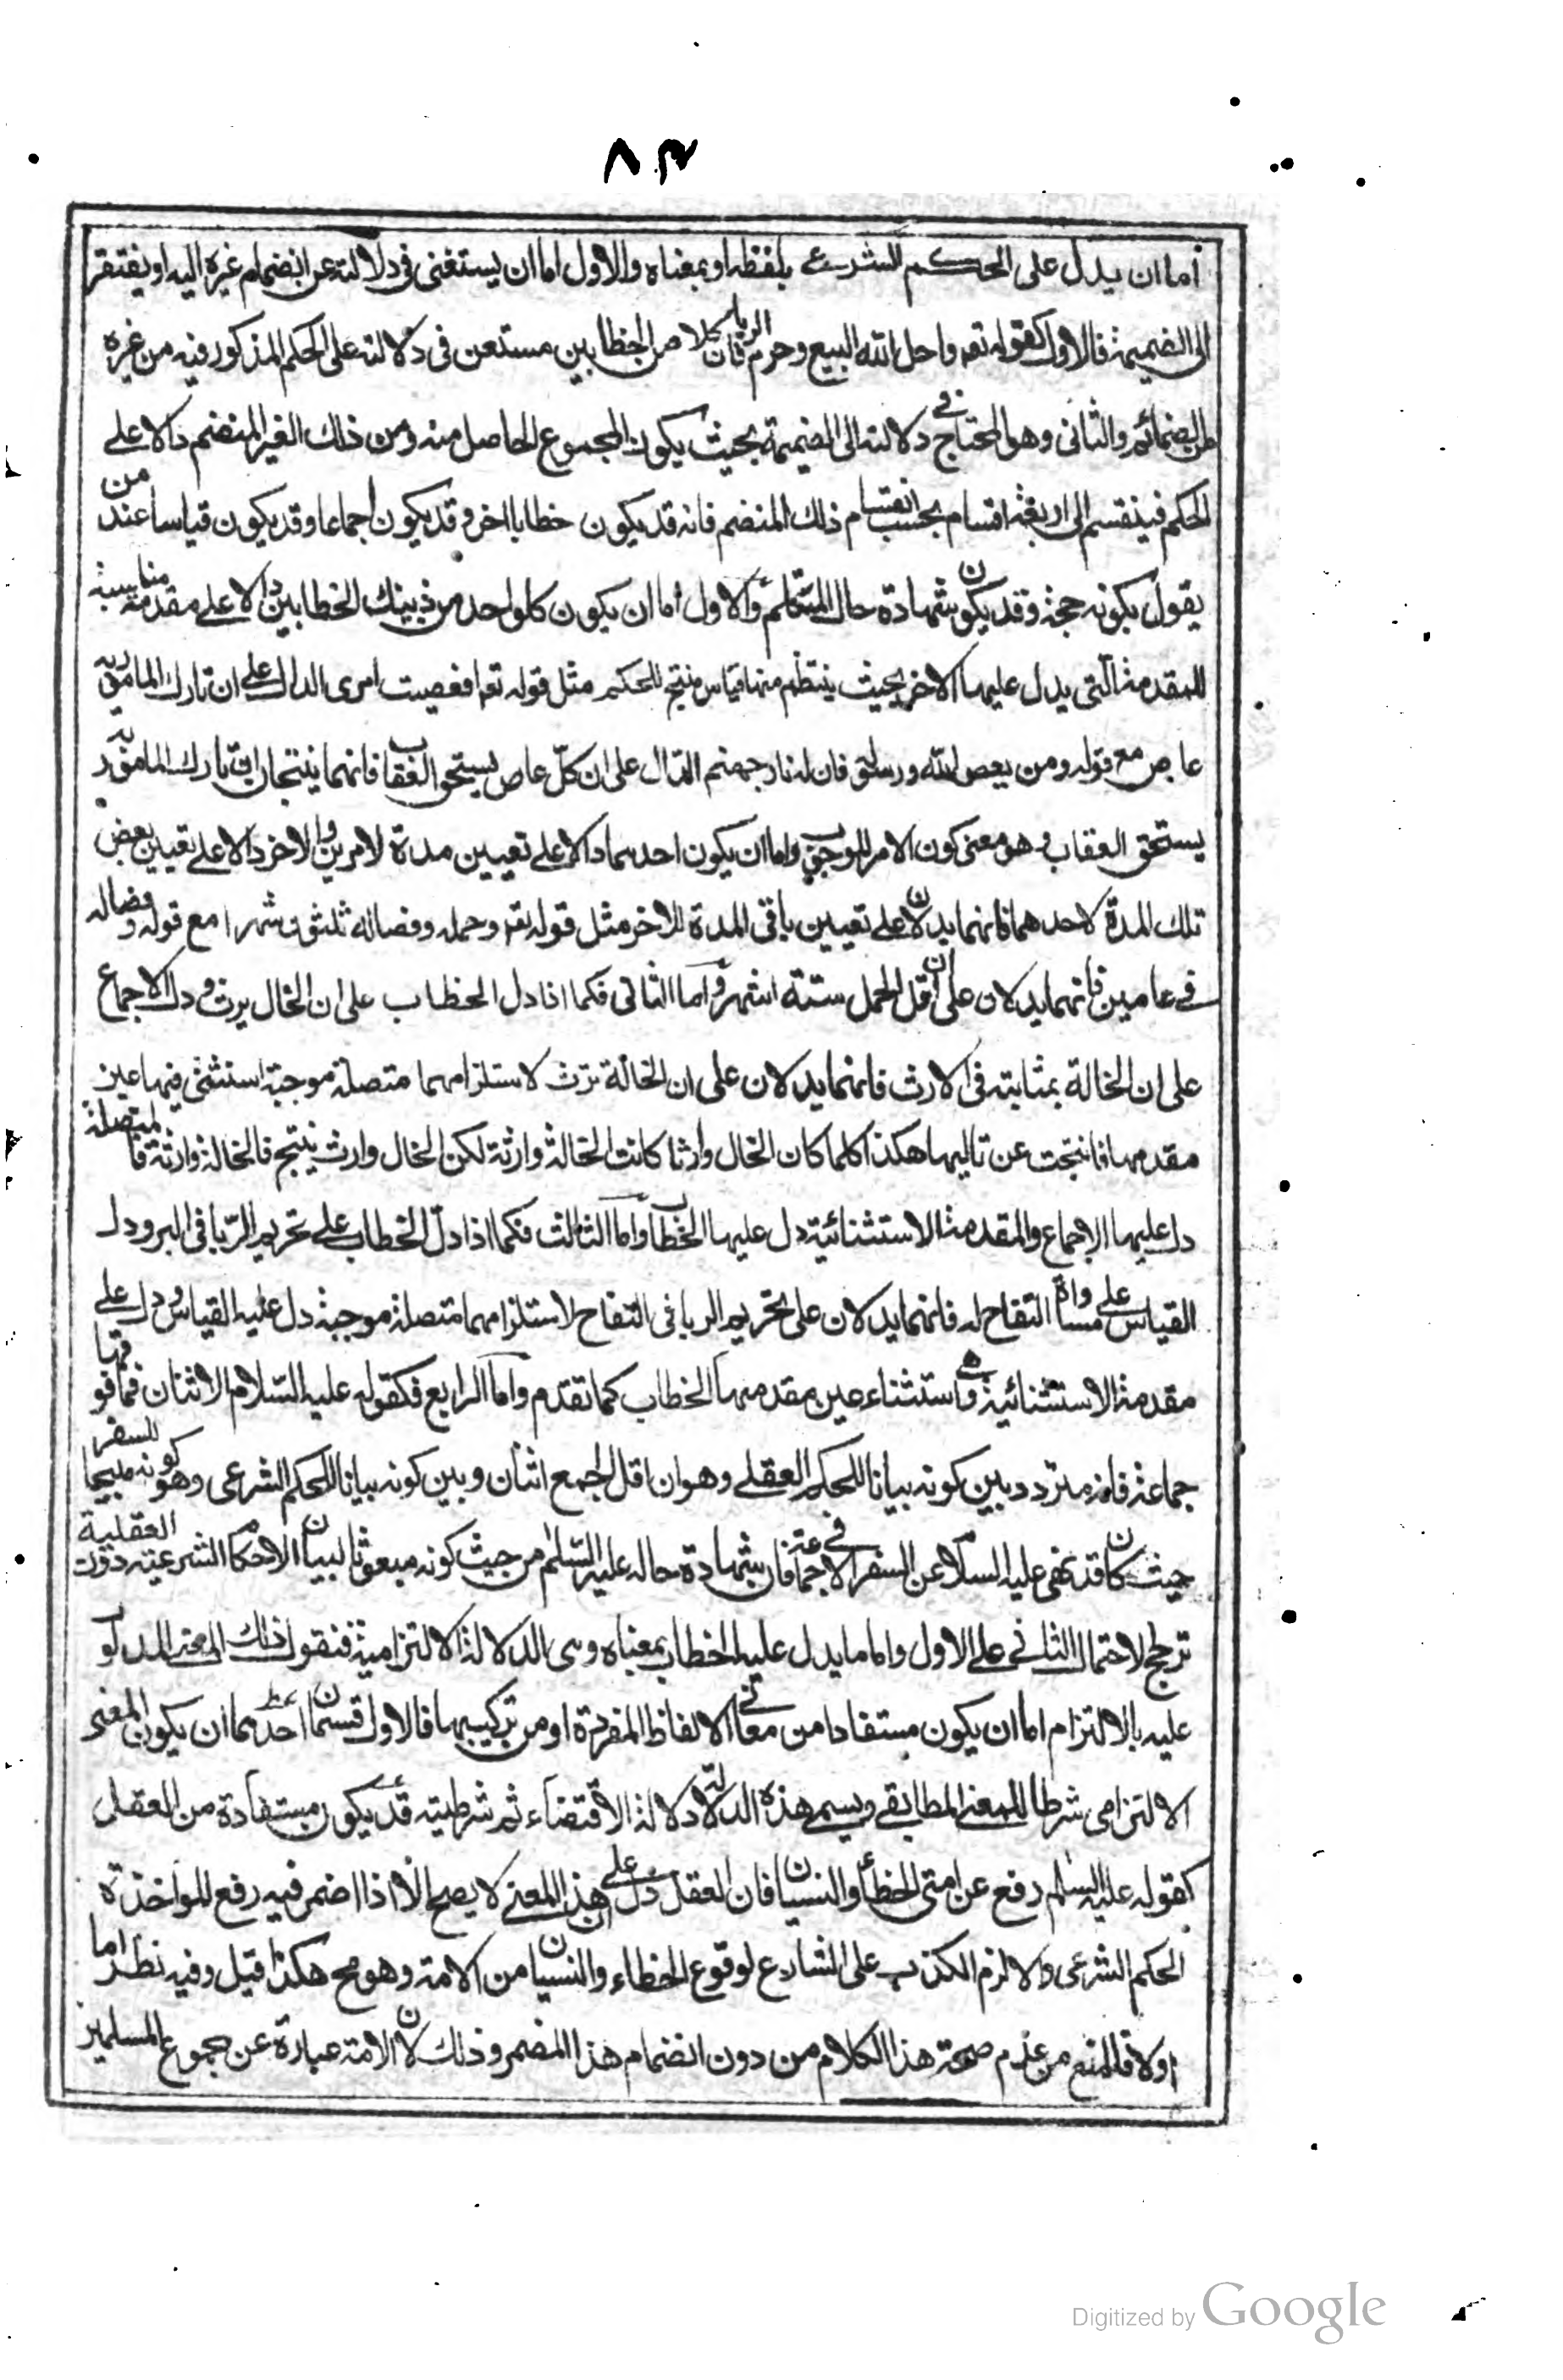 ٨٣
اما ان يدل على الحكم الشرعى بلفظه او بمعناه والاول اما ان يستغنى فى دلالته عن انضمام غيره اليه او يفتقر
الى الضميمة فالاول كقوله تعه واحل الله البيع وحرم الربا فان كلا من الخطابين مستغن فى دلالته على الحكم المذكور فيه من غيره
من الضمائم والثانى وهو المحتاج فى دلالته الى الضميمة بحيث يكون المجموع الحاصل منه ومن ذلك الغير المنضم دالا على
الحكم فينقسم الى اربعة اقسام بحسب انقسام ذلك المنضم فانه قد يكون خطابا اخر وقد يكون اجماعا وقد يكون قياسا عند من
يقول بكونه حجة وقد يكون شهادة حال المتكلم والاول اما ان يكون كل واحد من ذينك الخطابين دالا على مقدمة مناسبة
للمقدمة التى يدل عليها الاخر بحيث ينتظم منها قياس منتج للحكم مثل قوله تعه افعصيت امرى الدال على ان تارك المامور به
عاص مع قوله ومن يعص الله ورسوله فان له نار جهنم الدال على ان كل عاص يستحق العقاب فانهما ينتجان ان تارك المامور به
يستحق العقاب وهو معنى كون الامر للوجوب واما ان يكون احدهما دالا على تعيين مدة لامرين والاخر دالا على تعيين بعض
تلك المدة لاحدهما فانهما يدلان على تعيين باقى المدة للاخر مثل قوله تعه وحمله وفصاله ثلثون شهرا مع قوله وفصاله
فى عامين فانهما يدلان على ان اقل الحمل ستة اشهر واما الثانى فكما اذا دل الخطاب على ان الخال يرث ودل الاجماع
على ان الخالة بمثابته فى الارث فانهما يدلان على ان الخالة ترث لاستلزامهما متصلة موجبة استثنى فيها عين
مقدمها فانتجت عن تاليها هكذا كلما كان الخال وارثا كانت الخالة وارثة لكن الخال وارث ينتج فالخالة وارثة فالمتصلة
دل عليها الاجماع والمقدمة الاستثنائية دل عليها الخطاب واما الثالث فكما اذا دل الخطاب على تحريم الربا فى البر ودل
القياس على مساواة التفاح له فانهما يدلان على تحريم الربا فى التفاح لاستلزامهما متصلة موجبة دل عليه القياس ودل على
مقدمة الاستثنائية وهى استثناء عين مقدمها الخطاب كما تقدم واما الرابع فكقوله عليه السلام الاثنان فما فوقها
جماعة فانه متردد بين كونه بيانا للحكم العقلى وهو ان اقل الجمع اثنان وبين كونه بيانا للحكم الشرعى وهو كونه مبيحا للسفر
حيث كان قد نهى عليه السلام عن السفر الا فى جماعة فان بشهادة حاله عليه السلم من حيث كونه مبعوثا لبيان الاحكام الشرعية دون العقلية
ترجح لاحتمال الثانى على الاول واما ما يدل عليه الخطاب بمعناه وهى الدلالة الالتزامية فنقول ذلك المعنى المدلو
عليه بالالتزام اما ان يكون مستفادا من معانى الالفاظ المفردة او من تركيبها فالاول قسمان احدهما ان يكون المعنى
الالتزامى شرطا للمعنى المطابقى ويسمى هذه الدلالة دلالة الاقتضاء ثم شرطيته قد يكون مستفادة من العقل
كقوله عليه السلم رفع عن امتى الخطأ والنسيان فان العقل دل على ان هذا المعنى لا يصح الا اذا اضمر فيه رفع المواخذة
الحكم الشرعى والا لزم الكذب على الشارع لوقوع الخطاء والنسيان من الامة وهو مح هكذا قيل وفيه نظر اما
اولا فالمنع من عدم صحة هذا الكلام من دون انضمام هذا المضمر وذلك لان الامة عبارة عن مجموع المسلمين
Digitized by Google